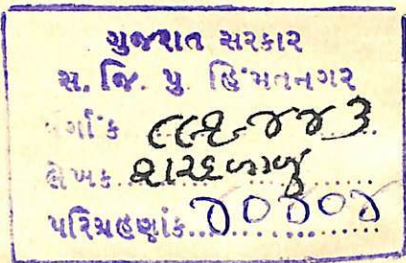 ગુજરાત સરકાર
સ. જિ. પુ. હિંમતનગર
વર્ગાંક ૮૯૧.૪૪૩
લેખક શરદબાબુ
પરિગ્રહણાંક ૪૦૪૦૪